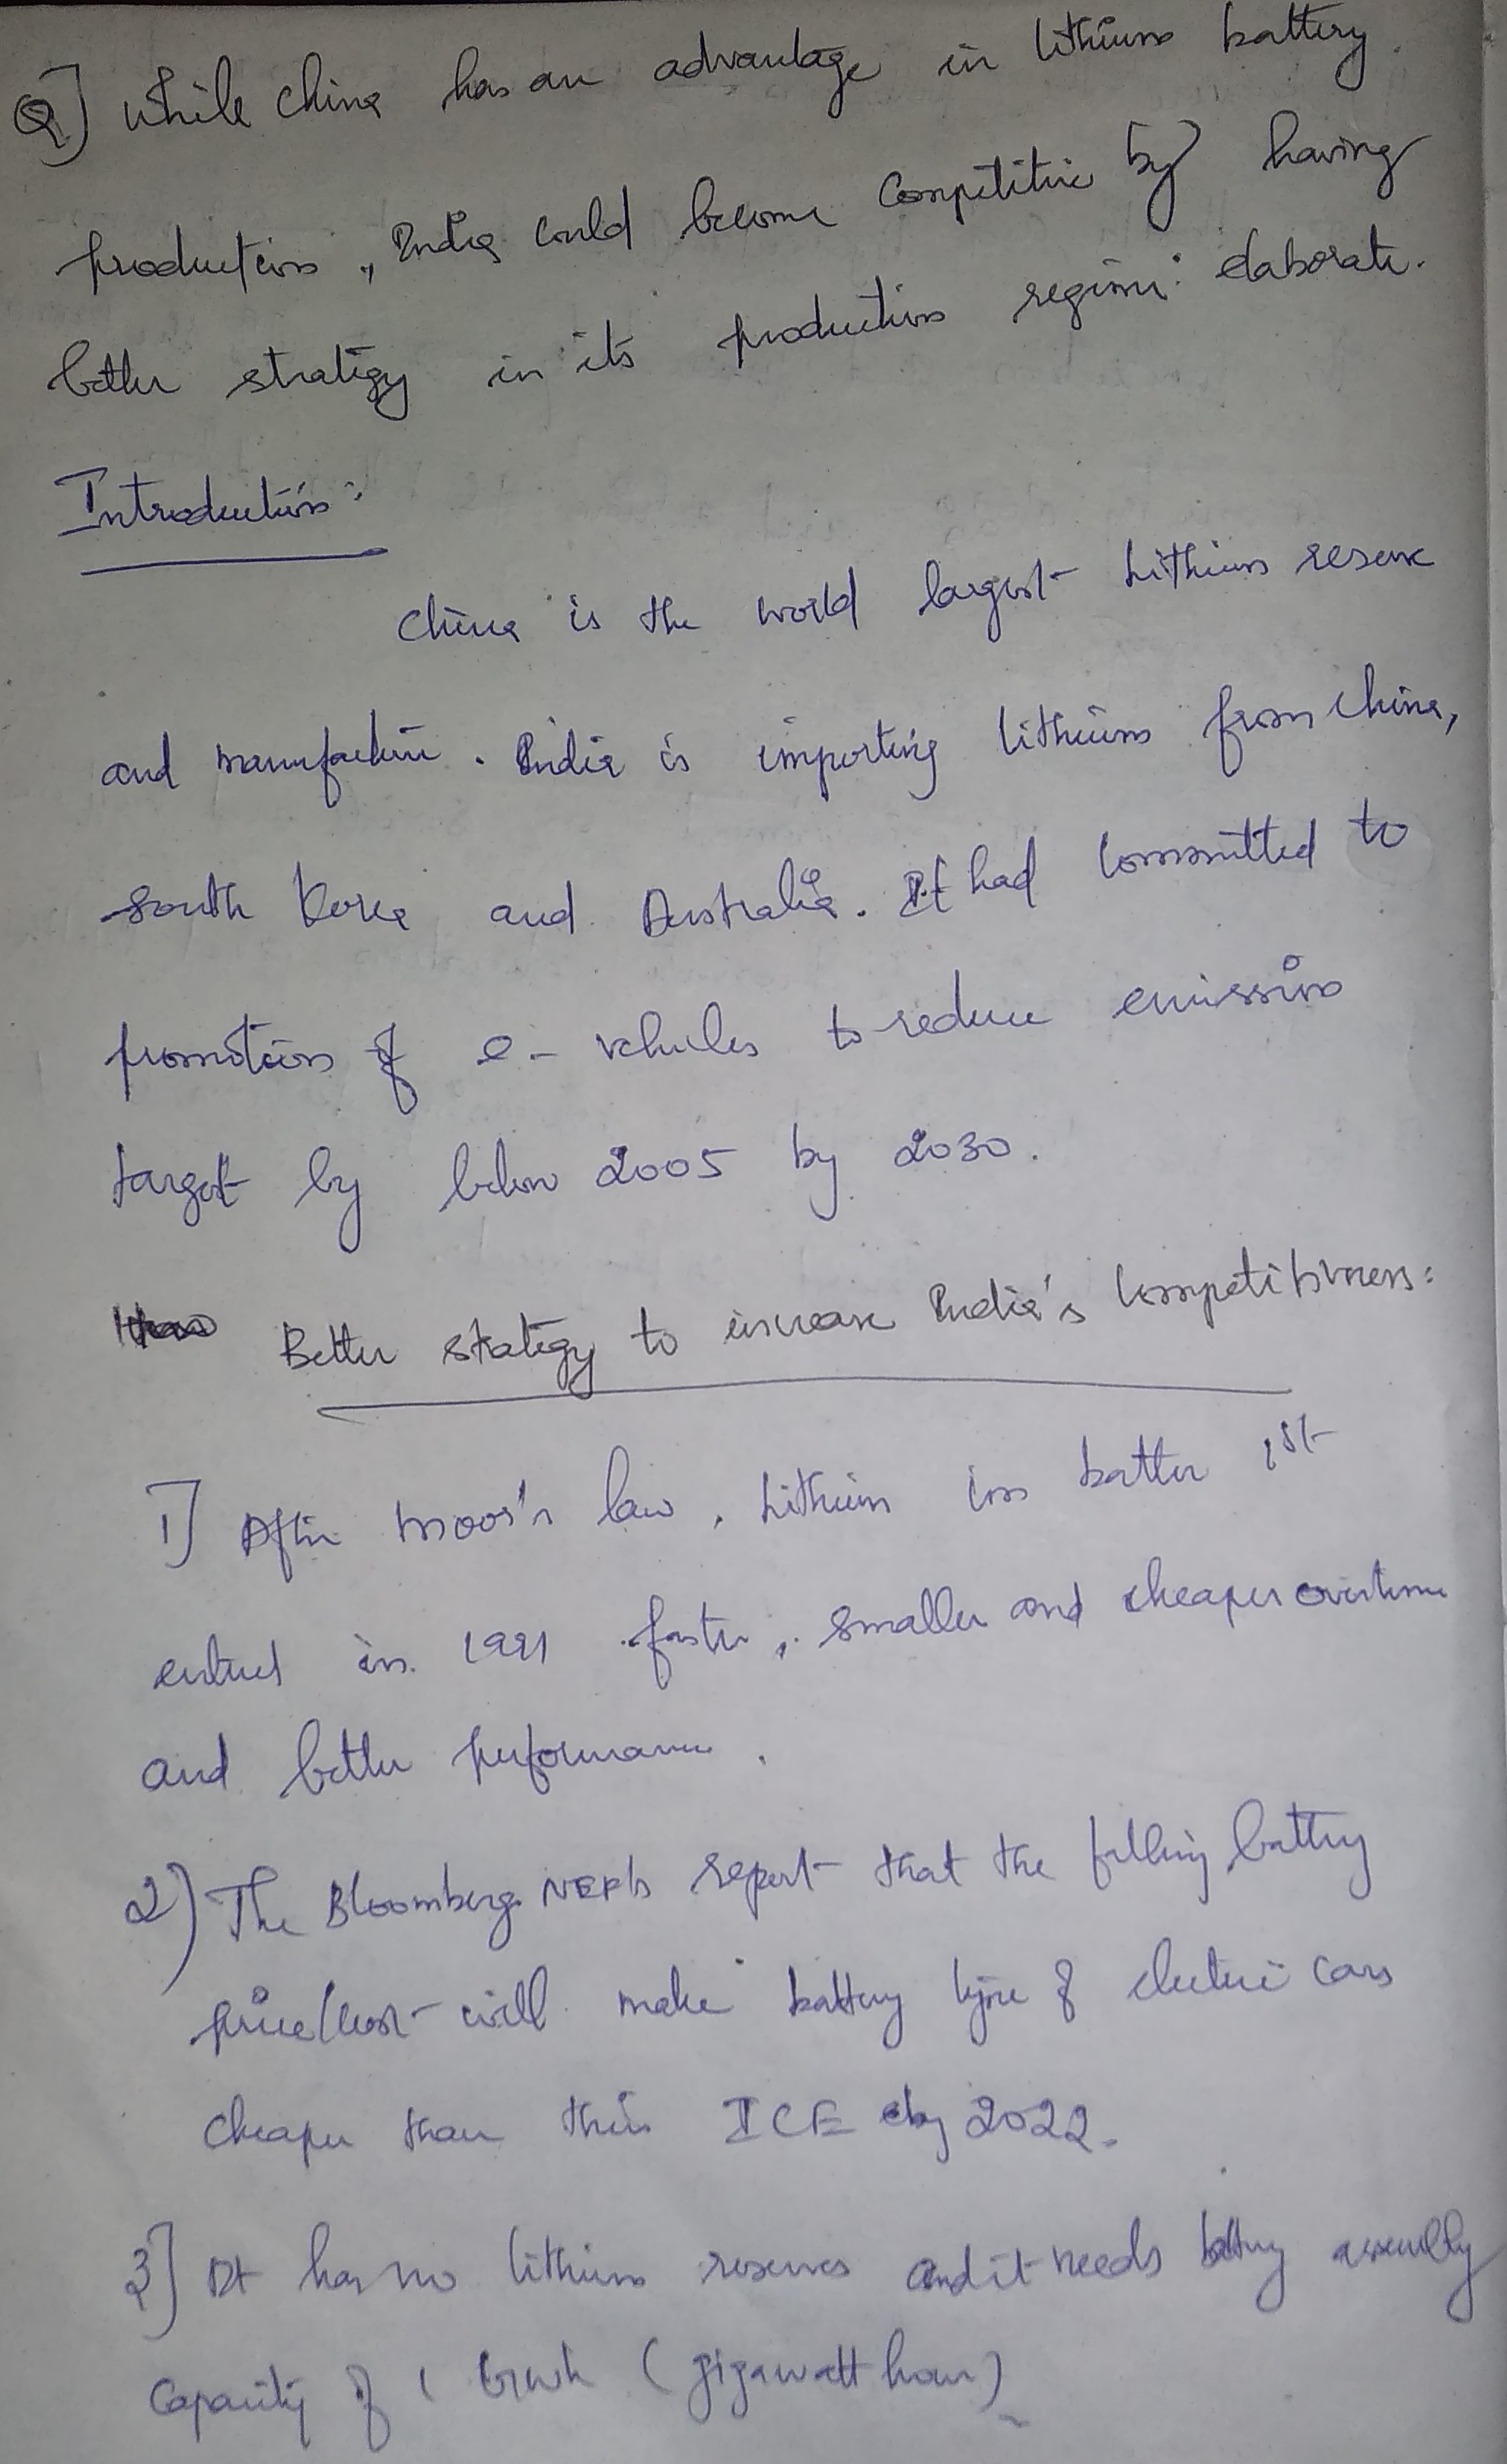 Q] While China has an advantage in lithium battery
production, India could become competitive by having
better strategy in its production regime. elaborate.
Introduction:
China is the world largest lithium reserve
and manufacture. India is importing lithium from China,
South Korea and Australia. It had committed to
promotion of e-vehicles to reduce emission
target by below 2005 by 2030.
Better strategy to increase India's competitiveness:
1] After Moor's law, Lithium ion batter 1st
entered in 1991 faster, smaller and cheaper overtime
and better performance.
2) The Bloomberg NEF's report that the falling battery
price/cost will make battery type of electric cars
cheaper than this ICE by 2022.
3] It has no lithium reserves and it needs battery assembly
capacity of 1 GWh (gigawatt hour)